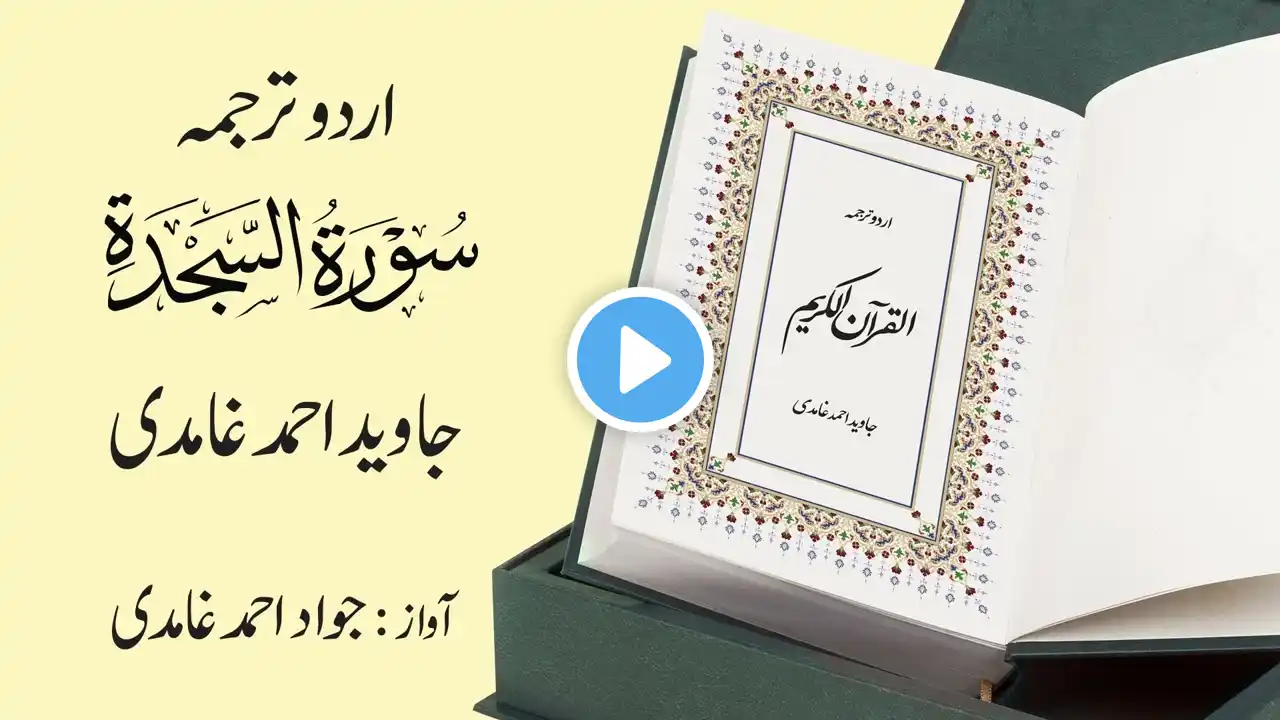 اردو ترجمہ
سُوْرَةُ السَّجْدَةِ
جاوید احمد غامدی
آواز : جواد احمد غامدی
اردو ترجمہ
القرآن الکریم
جاوید احمد غامدی